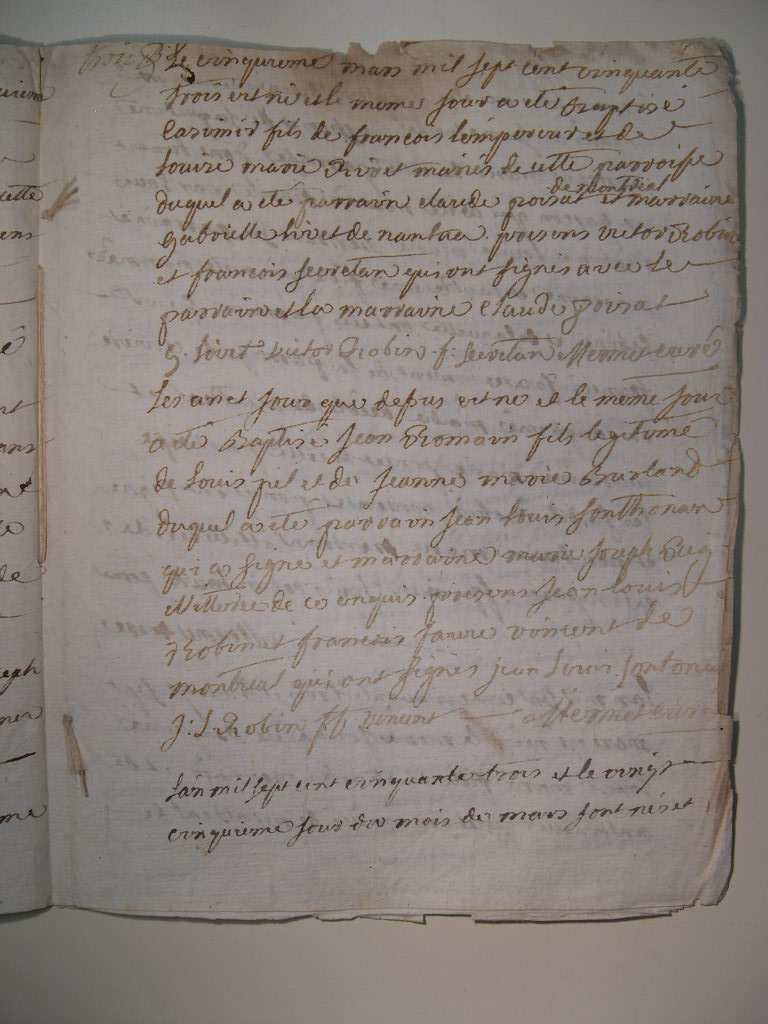 Le cinquieme mars mil sept cent cinquante
trois est né et le meme jour a été Baptisé
Casimir fils de francois lempereur et de
Louise marie Rivet mariés de cette parroisse
duquel a été parrain claude poisat et marraine
de montreal
gabrielle livet de nantua. presens victor Robin
et francois secretan qui ont signés avec le
parrain et la marraine Claude poisat
g. livet victor Robin f. secretan Mermet curé
Les an et jour que depus est ne et le même jour
a eté Baptisé Jean Romain fils legitime
de Louis pel et de Jeanne marie Burland
duquel a eté parrain Jean Louis sonthonax
qui a signé et marraine marie Joseph
illitterée de ce enquis presens Jean louis
Robin et francois vincent de
montreal qui ont signes jean Louis sontonax
J: L Robin vincent Mermet curé
Lan mil sept cent cinquante trois et le vingt
cinquieme jour du mois de mars sont nés et